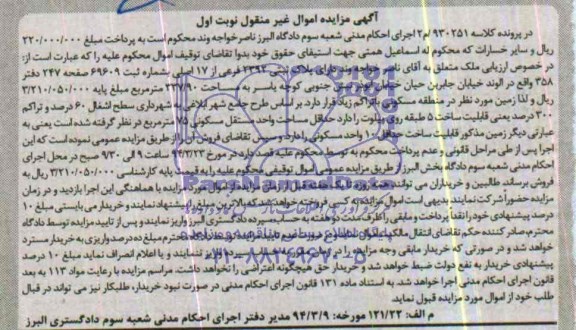 آگهی مزایده اموال غیر منقول نوبت اول
در پرونده کلاسه ۹۳۰۲۵۱/م۳ اجرای احکام مدنی شعبه سوم دادگاه البرز ناصر خواجه وند محکوم است به پرداخت مبلغ ۲۲۰/۰۰۰/۰۰۰
ریال و سایر خسارات که محکوم له اسماعیل همتی جهت استیفای حقوق خود بدوا تقاضای توقیف اموال محکوم علیه را که عبارت است از:
در خصوص ارزیابی ملک متعلق به آقای ناصر خواجه وند دارای پلاک ثبتی ۱۳۹۲ فرعی از ۱۷ اصلی بشماره ثبت ۶۹۶۰۹ صفحه ۲۴۷ دفتر
۳۵۸ واقع در الوند خیابان جابربن حیان خیابان جنوبی کوچه یاسر به مساحت ۲۳۷/۹۰ مترمربع مبلغ پایه ۳/۲۱۰/۰۵۰/۰۰۰
ریال و لذا زمین مورد نظر در منطقه مسکونی باتراکم زیاد قرار دارد بر اساس طرح جامع شهر ابلاغی شهرداری سطح اشغال ۶۰ درصد و تراکم
۳۰۰ درصد یعنی قابلیت ساخت ۵ طبقه روی پیلوت را دارد حداقل مساحت واحد مستقل مسکونی ۷۵ مترمربع در نظر گرفته شده است یعنی به
عبارتی دیگر زمین مذکور قابلیت ساخت حداقل ۱۰ واحد مسکونی را دارد و سپس تقاضای فروش آن از طریق مزایده عمومی نموده است که این
اجرا پس از طی مراحل قانونی و عدم پرداخت محکوم به توسط محکوم علیه قصد دارد در مورخ ۹۴/۳/۲۳ ساعت ۹ الی ۹/۳۰ صبح در محل اجرای
احکام مدنی شعبه سوم دادگاه بخش البرز از طریق مزایده عمومی اموال توقیفی محکوم علیه را به قیمت پایه کارشناسی ۳/۲۱۰/۰۵۰/۰۰۰ ریال به
فروش برساند. طالبین و خریداران می توانند همه روزه تا یک هفته قبل از زمان مزایده از اموال مورد مزایده با هماهنگی این اجرا بازدید و در زمان
مزایده حضور آ شرکت نمایند. بدیهی است اموال مزایده به کسی فروخته خواهد شد که بالاترین مبلغ را پیشنهاد نمایند و خریدار می بایستی مبلغ ۱۰
درصد پیشنهادی خود را نقداً پرداخت و مابقی را ظرف مدت به حساب سپرده دادگستری البرز واریز نماید و پس از تایید مزایده توسط دادگاه
محترم، صادر کننده حکم تقاضای انتقال مالکیت اموال درصد واریزی به خریدار مسترد
خواهد شد و در صورتی که خریدار مابقی وجه مزایده را در نمایند و یا اعلام انصراف نماید مبلغ ۱۰ درصد
پیشنهادی خریدار به نفع دولت ضبط خواهد شد و خریدار حق هیچگونه اعتراضی را نخواهد داشت. مراسم مزایده با رعایت مواد ۱۱۳ به بعد
قانون اجرای احکام مدنی اجرا خواهد شد. به استناد ماده ۱۳۱ قانون اجرای احکام مدنی در صورت نبود خریدار، طلبکار نیز می تواند در قبال
طلب خود از اموال مورد مزایده قبول نماید.
م الف: ۱۲۱/۲۲ مورخه: ۹۴/۳/۹ مدیر دفتر اجرای احکام مدنی شعبه سوم دادگستری البرز
۰۲۱-۸۸۳۴۹۶۷۰-۵